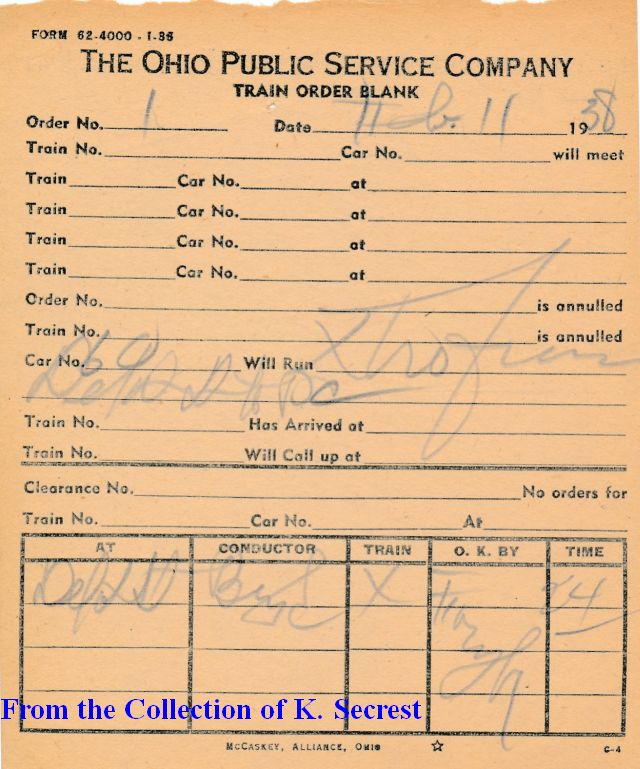 FORM 62-4000 - 1-36
THE OHIO PUBLIC SERVICE COMPANY
TRAIN ORDER BLANK
Order No. 1 Date Feb. 11 1938
Train No. Car No. will meet
Train Car No. at
Train Car No. at
Train Car No. at
Train Car No. at
Order No. is annulled
Train No. is annulled
Car No. Will Run X
Train No. Has Arrived at
Train No. Will Call up at
Clearance No. No orders for
Train No. Car No. At
AT CONDUCTOR TRAIN O. K. BY TIME
X
From the Collection of K. Secrest
MCCASKEY, ALLIANCE, OHIO ☆ C-4